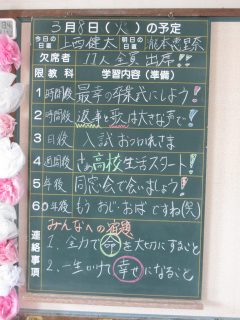 3月8日(火)の予定
今日の日直 上西健太 明日の日直
欠席者 17人全員出席!!
限 教科 学習内容(準備)
1 時間後 最幸の卒業式にしよう!
2 時間後 返事と歌は大きな声で!
3 日後 入試おつかれさま
4 週間後 さぁ高校生活スタート!
5 年後 同窓会で会いましょう!
60年後 もうおじ・おばですね(笑)
連絡事項
みんなへの宿題
1、全力で命を大切にすること
2、一生かけて幸せになること